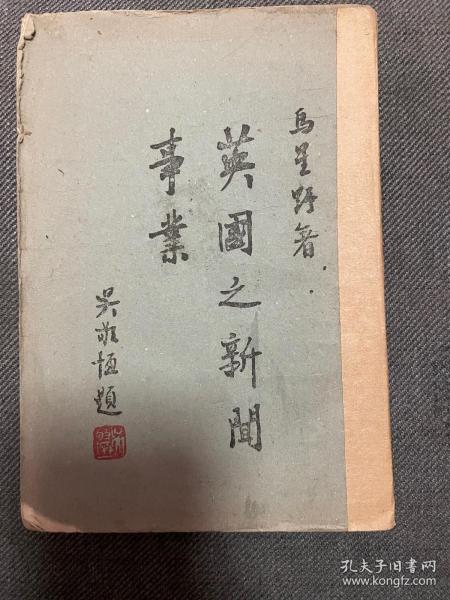 馬星野著
英國之新聞
事業
吳敬恒題
孔夫子旧书网
www.kongfz.com